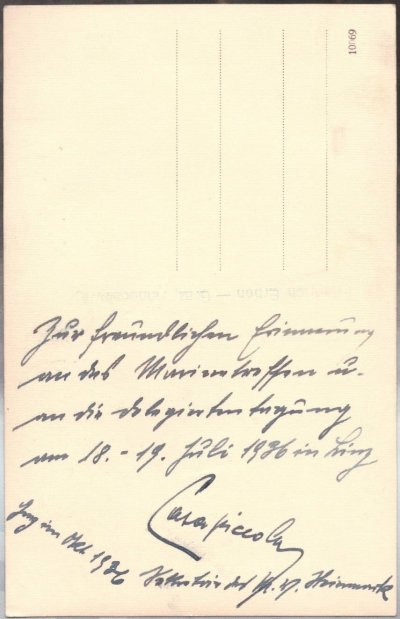 10169
Zur freundlichen Erinnerung
an das Marinetreffen u.
an die Delegiertentagung
am 18.-19. Juli 1936 in Linz
Casapiccola
im Okt. 1936
des